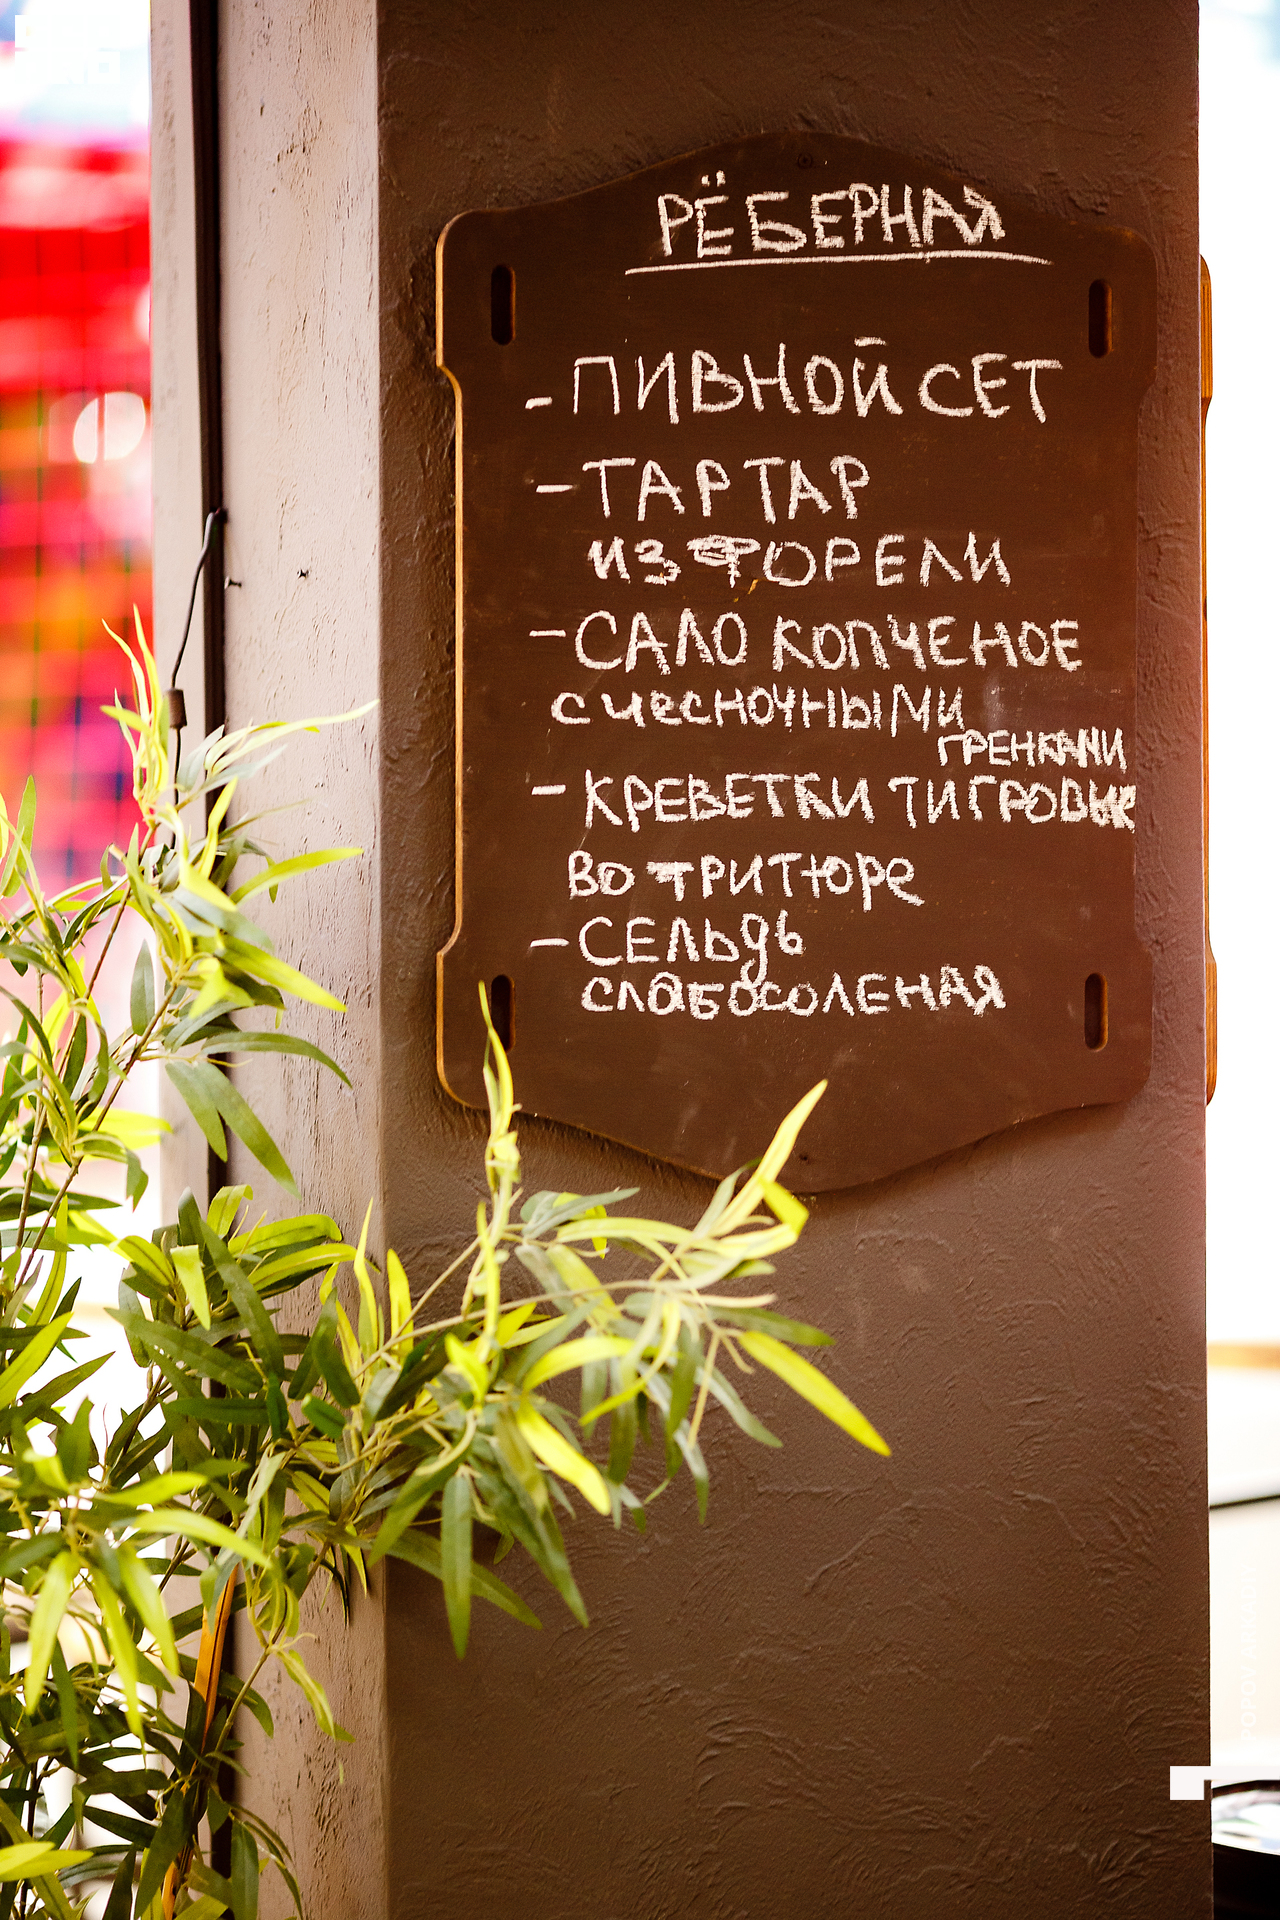 РЁБЕРНАЯ
- ПИВНОЙ СЕТ
- ТАРТАР
ИЗ ФОРЕЛИ
- САЛО КОПЧЕНОЕ
С ЧЕСНОЧНЫМИ
ГРЕНКАМИ
- КРЕВЕТКИ ТИГРОВЫЕ
ВО ФРИТЮРЕ
- СЕЛЬДЬ
СЛАБОСОЛЕНАЯ